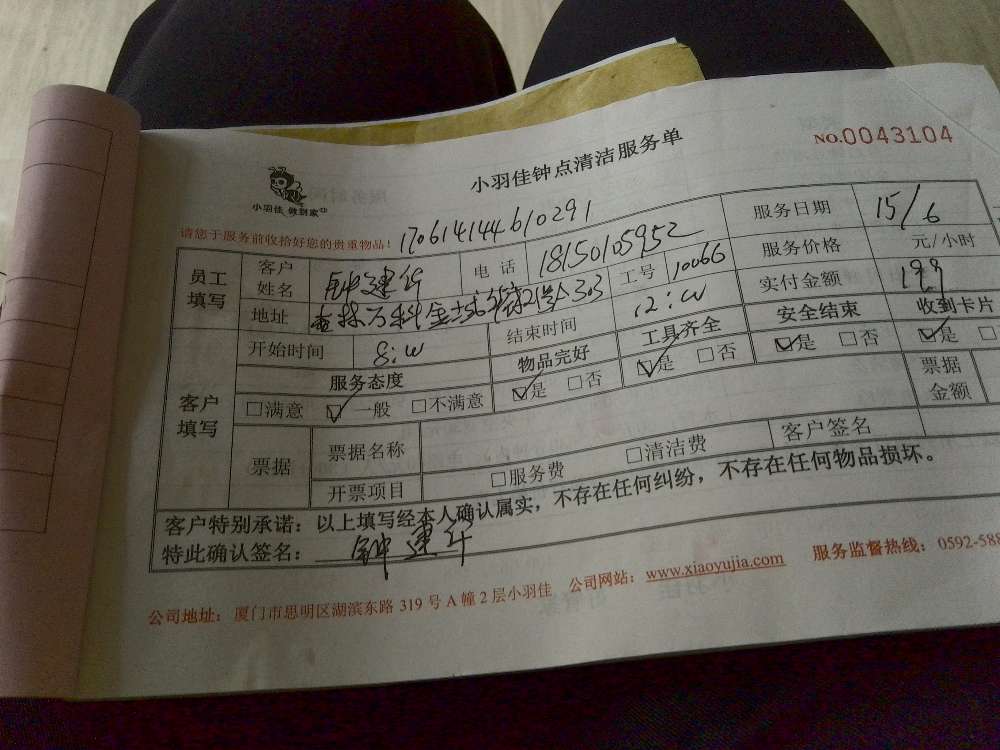 小羽佳钟点清洁服务单
NO.0043104
小羽佳 做到家
请您于服务前收拾好您的贵重物品! 170614144610291
员工填写 客户姓名 钟建 电话 18150105952 工号 10066 服务日期 15/6
服务价格 元/小时
地址 万科金 303 实付金额 199
开始时间 8:00 结束时间 12:00
服务态度 物品完好 工具齐全 安全结束 收到卡片
客户填写 □满意 ☑一般 □不满意 ☑是 □否 ☑是 □否 ☑是 □否 ☑是 □
票据 票据名称 票据金额
开票项目 □服务费 □清洁费 客户签名
客户特别承诺:以上填写经本人确认属实,不存在任何纠纷,不存在任何物品损坏。
特此确认签名: 钟建
公司地址:厦门市思明区湖滨东路 319 号 A 幢 2 层小羽佳 公司网站:www.xiaoyujia.com 服务监督热线:0592-588